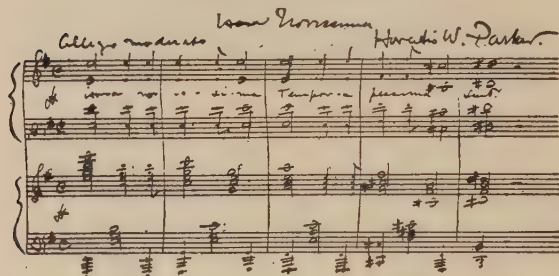 Hora Novissima
Allegro moderato Horatio W. Parker.
Hora no - vis - si - ma Tempor - a pessima sunt